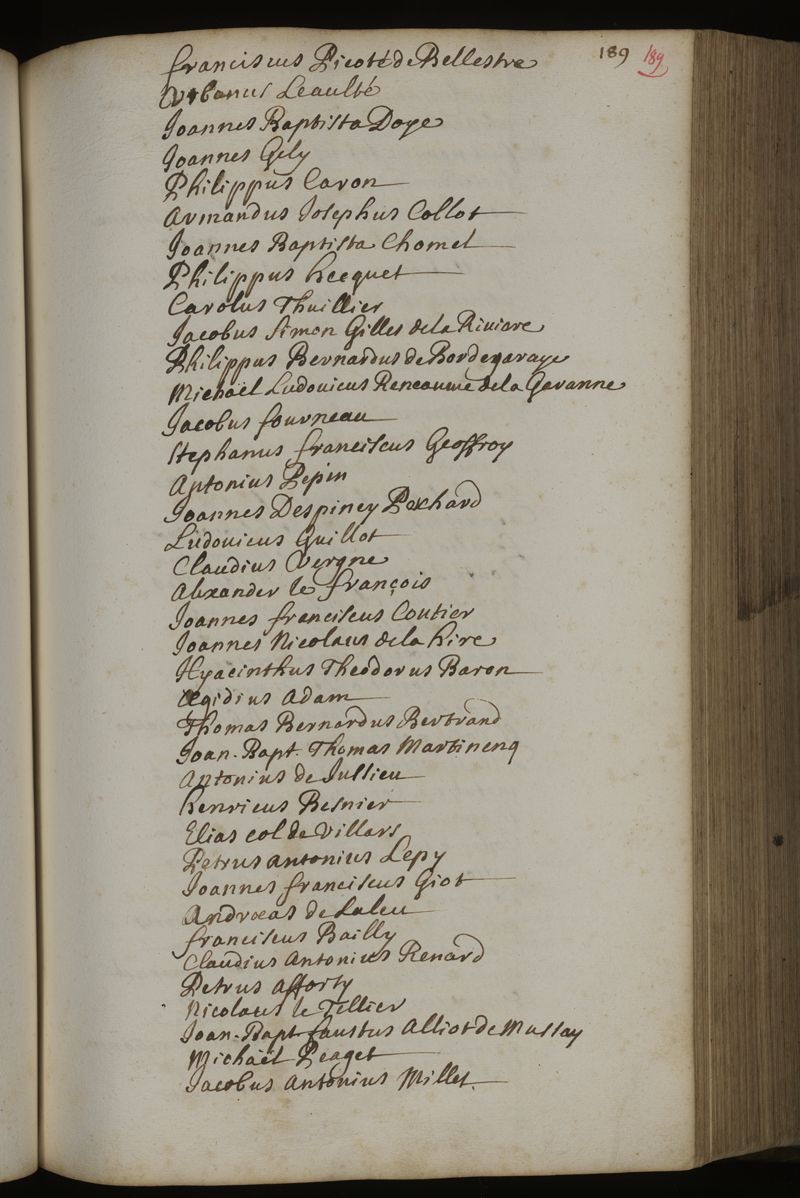 189 189
Franciscus Picoté de Bellestre
Urbanus Leaulté
Joannes Baptista Doye
Joannes Gely
Philippus Caron
Armandus Josephus Collot
Joannes Baptista Chomel
Philippus hecquet
Carolus Thuillier
Jacobus Simon Gilles dela Riviare
Philippus Bernardus de Bordegaraye
Michaël Ludovicus Reneaume dela Garanne
Jacobus fourneau
Stephanus franciscus Geoffroy
Antonius Pepin
Joannes Despiney
Ludovicus Guillot
Claudius Vergne
Alexander le françois
Joannes franciscus Coutier
Joannes Nicolaus dela hire
Hyacinthus Theodorus Baron
Ægidius Adam
Thomas Bernardus Bertrand
Joan. Bapt. Thomas Martinenq
Antonius de Jussieu
henricus Besnier
Elias col de Villars
Petrus antonius Lepy
Joannes franciscus Giot
Andræas de Laleu
franciscus Bailly
Claudius Antonius Renard
Petrus afforty
Nicolaus le Tellier
Joan-Bapt-faustus Alliot de Mussay
Michaël Peaget
Jacobus Antonius Millet